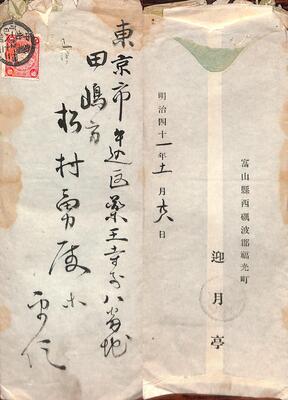 東京市牛込区薬王寺町八番地
田嶋方
松村
平信
明治四十一年十一月十六日
富山縣西礪波郡福光町
迎月亭